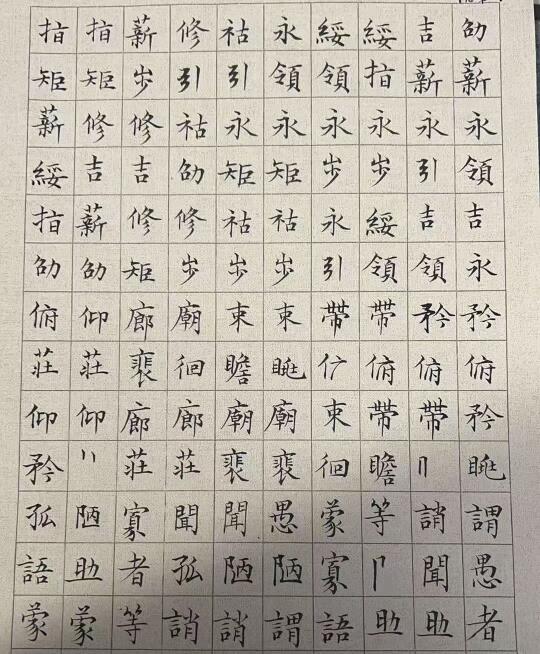 指指薪修祜永綏綏吉劭
矩矩步引引領領指薪薪
薪修修祜永永永永永永
綏吉吉劭矩矩步步引領
指薪修修祜祜永綏吉吉
劭劭矩步步步引領領永
俯仰廊廟束束帶帶矜矜
莊莊裴徊瞻眺俯俯俯
仰仰廊廊廟廟束帶帶矜
矜莊莊裴裴徊瞻眺
孤陋寡聞聞愚蒙等誚謂
語助者孤陋陋寡聞愚
蒙蒙等誚誚謂語助助者